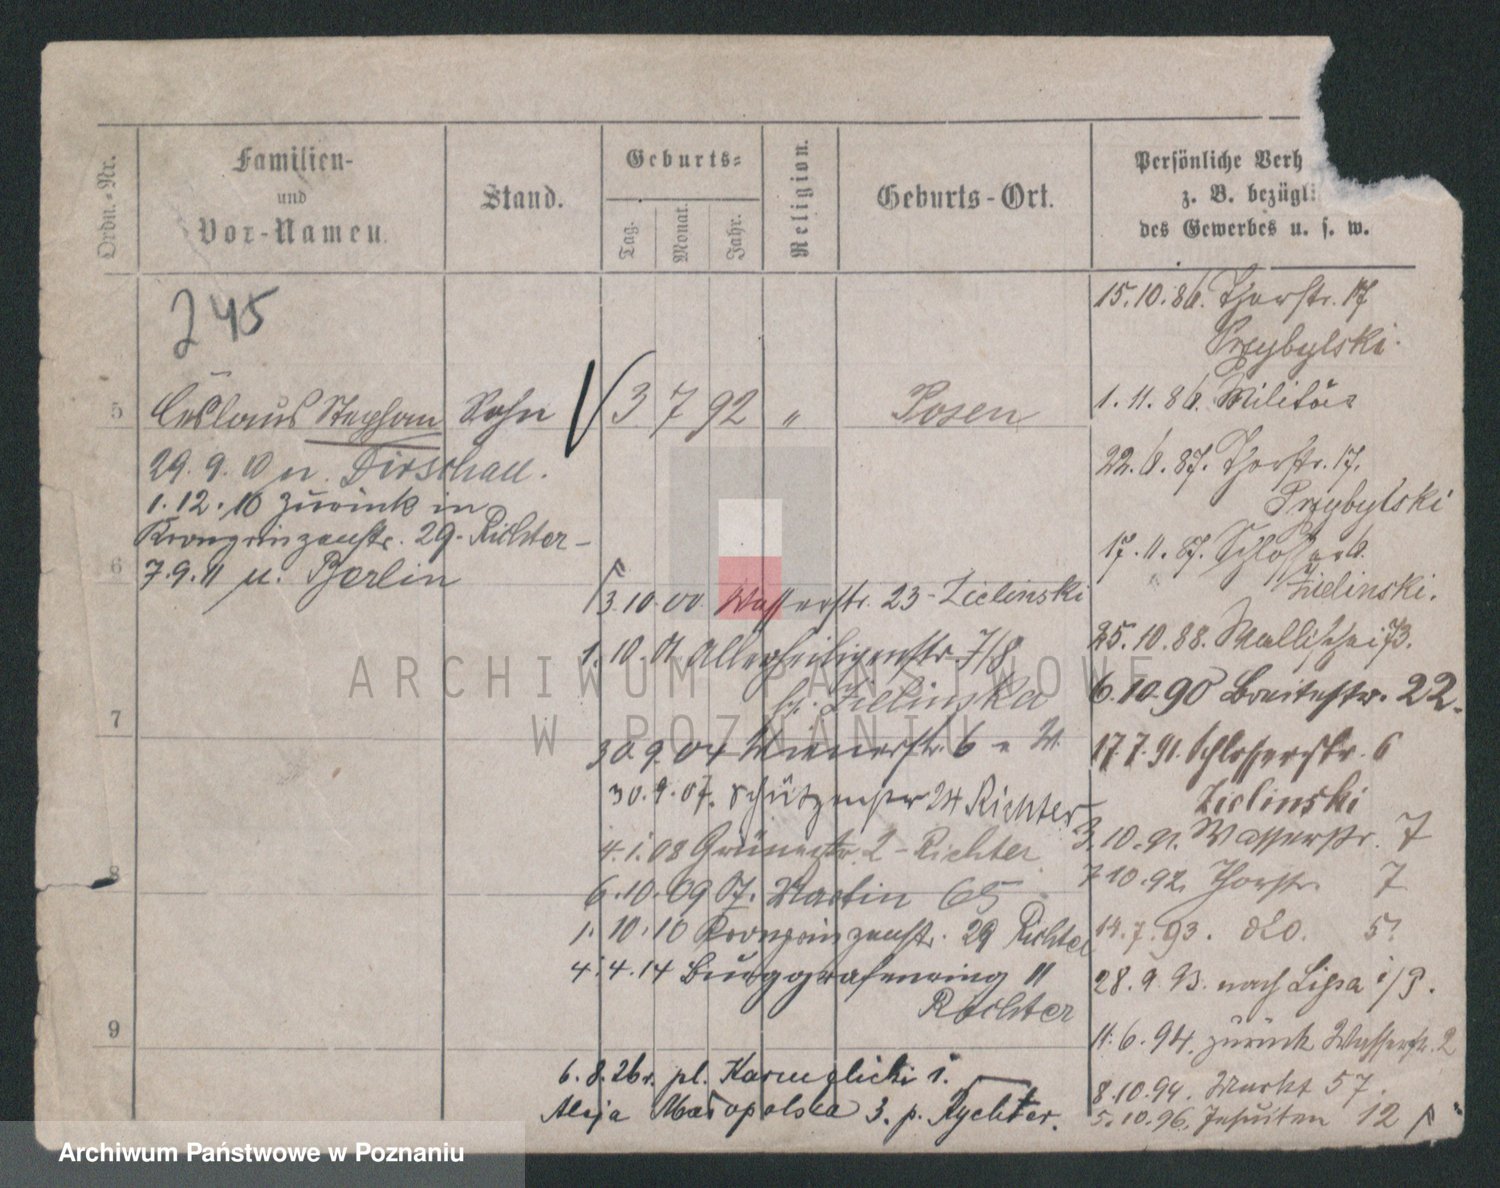 Ordn.-Nr.
Familien-
und
Vor-Namen.
Stand.
Geburts=
Tag.
Monat.
Jahr.
Religion.
Geburts-Ort.
Persönliche Verh
z. B. bezügli
des Gewerbes u. s. w.
245
5 Ceslaus Stephan Sohn 3 7 92 " Posen
29. 9. 10 n. Dirschau.
1. 12. 10 zurück in
Kronprinzenstr. 29. Richter-
6
7. 9. 11 u. Berlin
7
8
9
3. 10. 00 Wasserstr. 23 - Zielinski
1. 10. 01 Allerheiligenstr. 7/8
b. Zielinska
30. 9. 04 Wienerstr. 6
30. 9. 07. Schützenstr 24 Richter
4. 1. 08 Grünestr. 2 - Richter
6. 10. 09 Martin 65
1. 10. 10 Kronprinzenstr. 29 Richter
4. 4. 14 Burggrafenring 11
Richter
6. 8. 26. pl. Karmelicki 1.
Aleja Małopolska 3. p. Rychter.
15. 10. 86. Thorstr. 17
Przybylski.
1. 11. 86. Militär
22. 6. 87. Thorstr. 17.
Przybylski
17. 11. 87. Schlosser 6.
Zielinski.
25. 10. 88. Wallischei 73.
6. 10. 90 Breitestr. 22.
17. 7. 91. Schlosserstr. 6
Zielinski
3. 10. 91. Wasserstr. 7
7 10. 92. Thorstr. 7
14. 7. 93. dto. 5.
28. 9. 93. nach Lissa i/P.
11. 6. 94. zurück Wasserstr. 2
8. 10. 94. Markt 57.
5. 10. 96. Jesuiten 12
ARCHIWUM PAŃSTWOWE
W POZNANIU
Archiwum Państwowe w Poznaniu